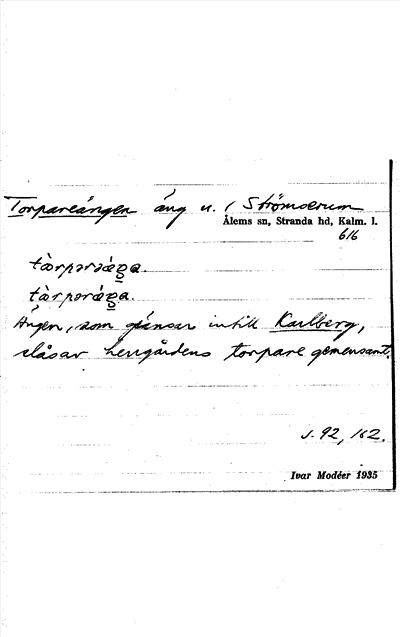 Torpareängen äng u. / Strömserum
Ålems sn, Stranda hd, Kalm. l.
616
Ängen, som gränsar intill Karlberg,
slåsar herrgårdens torpare gemensamt.
s. 92, 162.
Ivar Modéer 1935